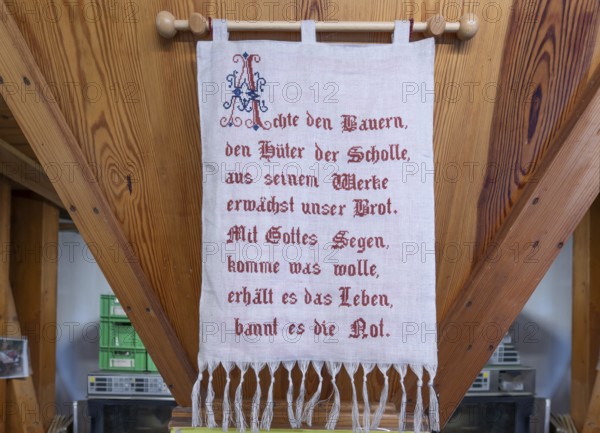 Achte den Bauern,
den Hüter der Scholle,
aus seinem Werke
erwächst unser Brot.
Mit Gottes Segen,
komme was wolle,
erhält es das Leben,
bannt es die Not.
PHOTO 12